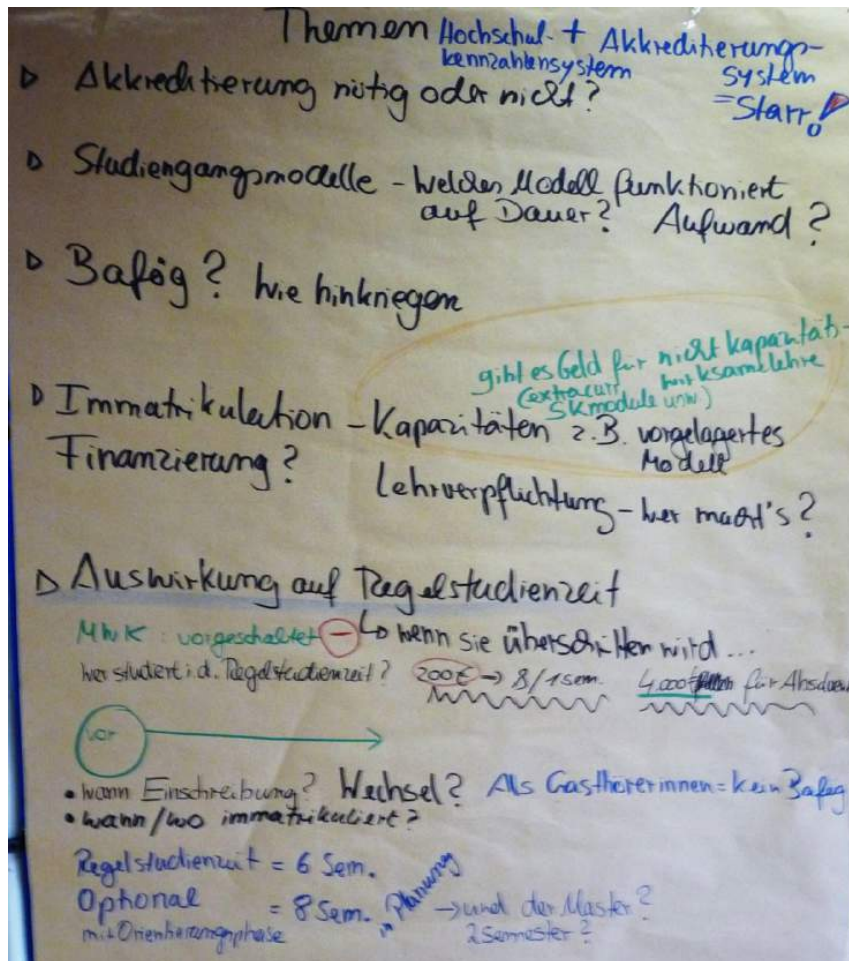 Themen Hochschul- + Akkreditierungs-
kennzahlensystem system
= Starr!
▷ Akkreditierung nötig oder nicht?
▷ Studiengangsmodelle - Welches Modell funktioniert
auf Dauer? Aufwand?
▷ Bafög? Wie hinkriegen
gibt es Geld für nicht kapazitäts-
(extracurr. wirksame Lehre
SKmodule usw.)
▷ Immatrikulation - Kapazitäten z.B. vorgelagertes
Finanzierung? Modell
Lehrverpflichtung - wer macht's?
▷ Auswirkung auf Regelstudienzeit
MWK: vorgeschaltet - ↳ wenn sie überschritten wird...
Wer studiert i.d. Regelstudienzeit? 200€ → 8/1 Sem. 4.000 für
vor
• wann Einschreibung? Wechsel? Als Gasthörerinnen = kein Bafög
• wann/wo immatrikuliert?
Regelstudienzeit = 6 Sem.
Optional = 8 Sem. in Planung → und der Master?
mit Orientierungsphase 2 Semester?